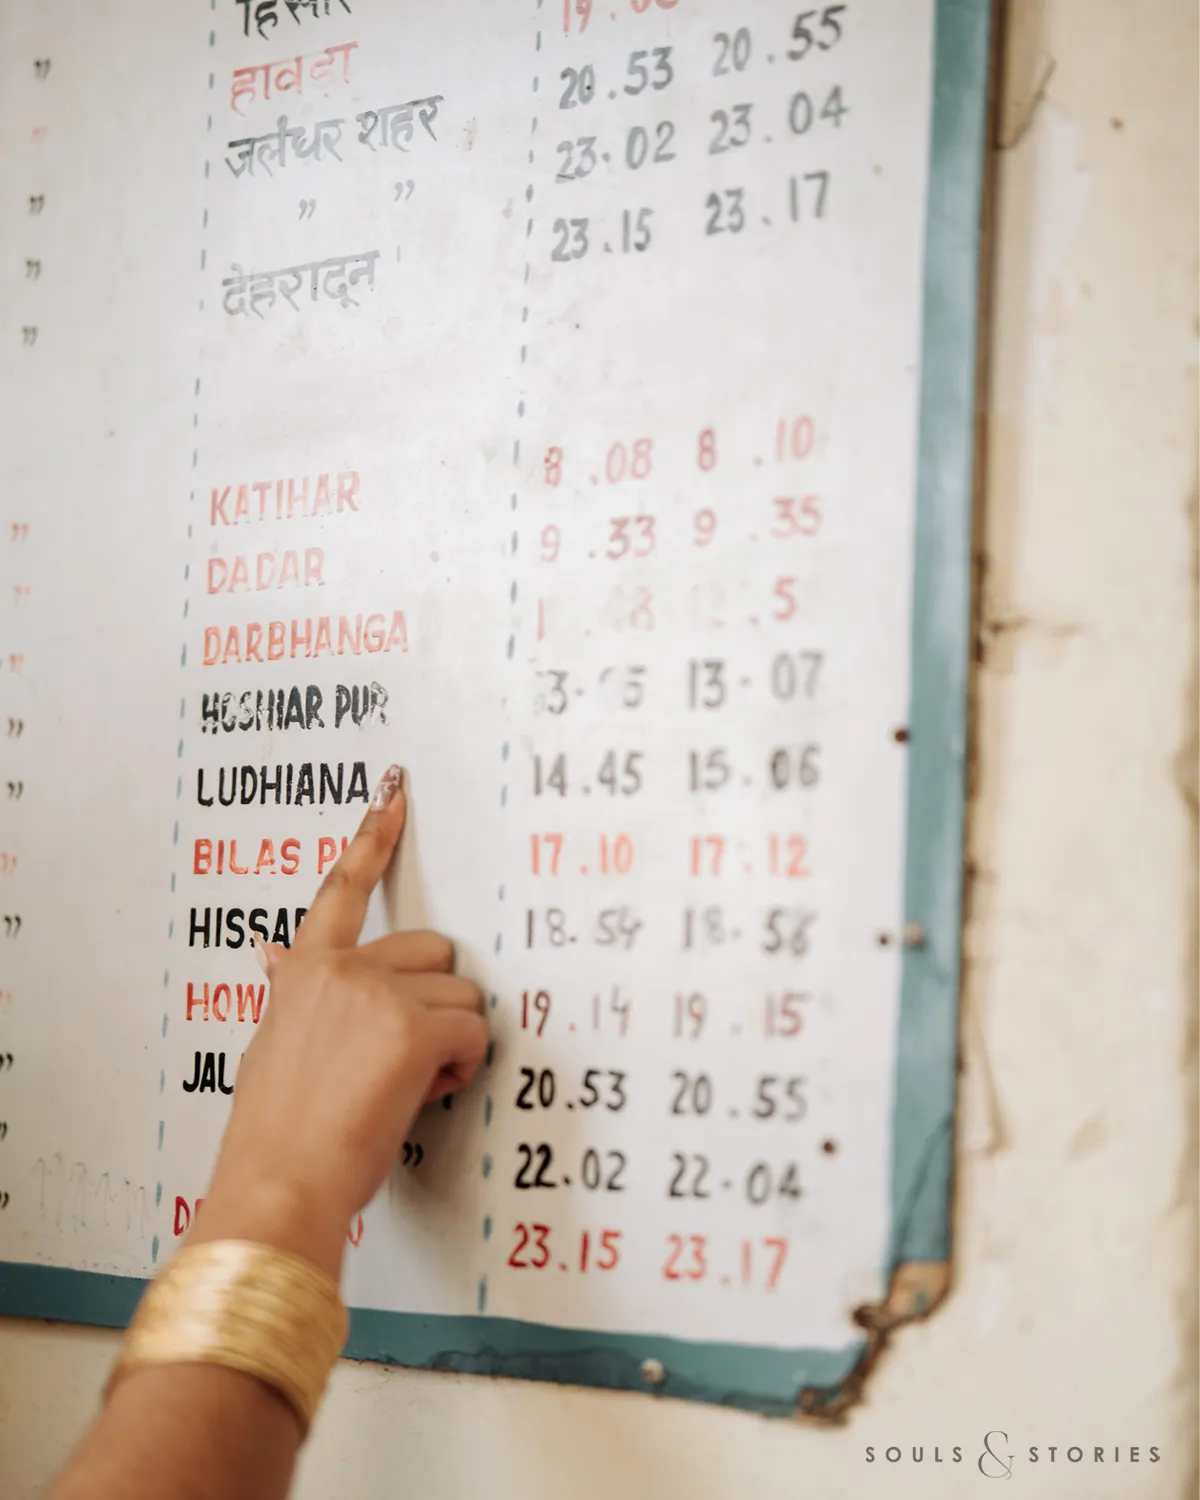 हिसार 19.
हावडा 20.53 20.55
जलंधर शहर 23.02 23.04
" " " 23.15 23.17
" देहरादून
"
KATIHAR 8.08 8.10
" DADAR 9.33 9.35
" DARBHANGA
" HOSHIAR PUR 13.07
" LUDHIANA 14.45 15.06
" BILAS 17.10 17.12
" HISSAR 18.54 18.56
" HOW 19.14 19.15
" JAL 20.53 20.55
" " 22.02 22.04
" 23.15 23.17
SOULS & STORIES